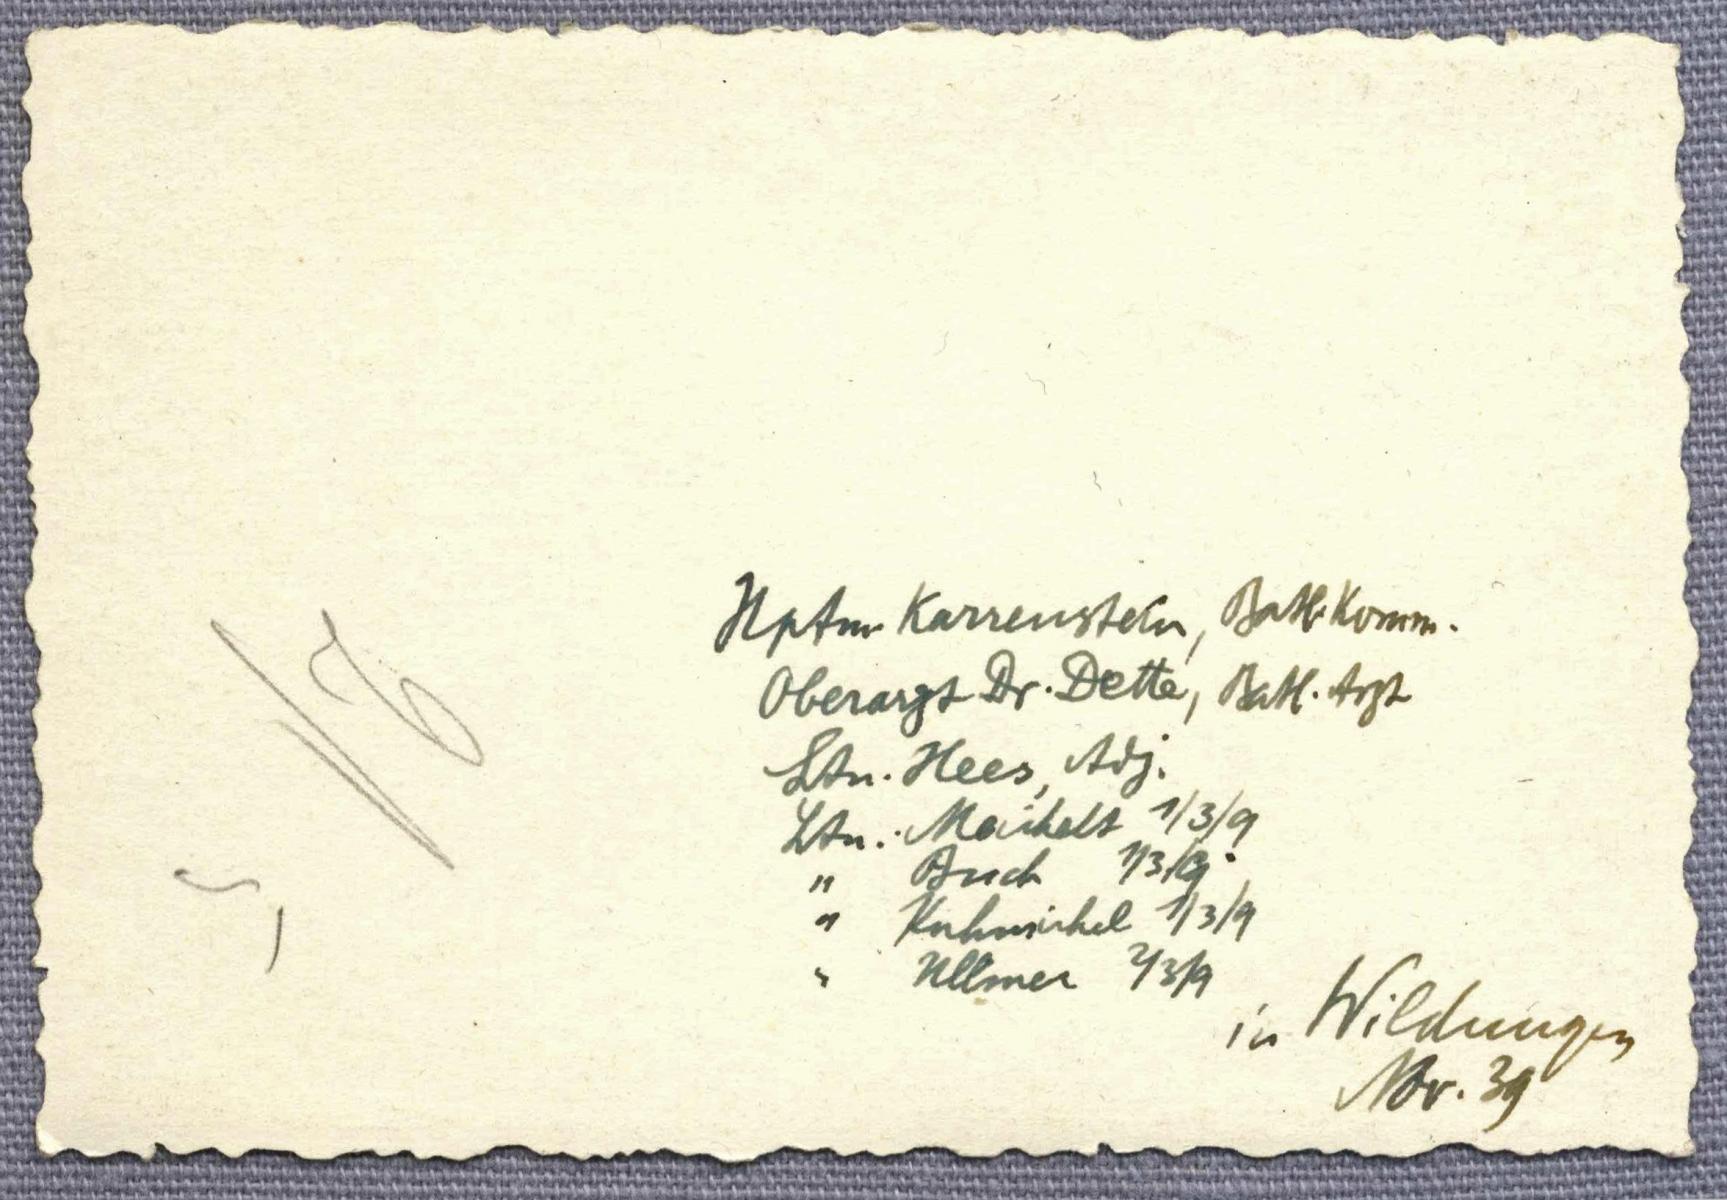 Hptm. Karrenstein, Batl. Komm.
Oberarzt Dr. Dette, Batl. Arzt
Ltn. Hees, Adj.
Ltn. 1/3/9
" Buch 1/3/9
" Kuhmichel 1/3/9
" Ullmer 2/3/9
in Wildungen
Nov. 39